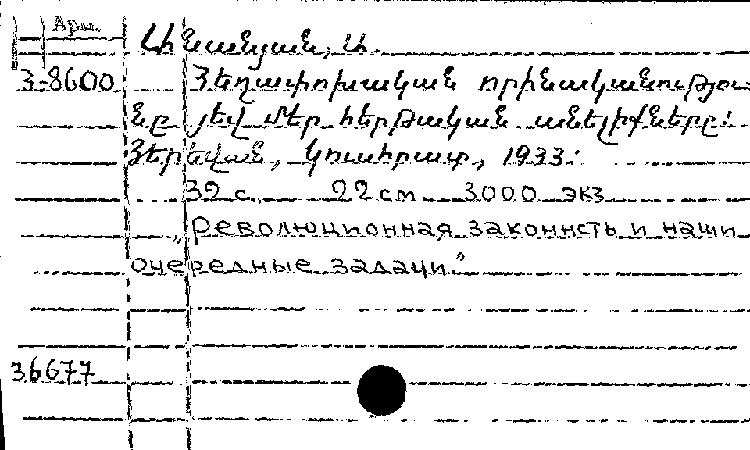 Арм.
Սինանյան, Ս.
3-8600 Հեղափոխական որինականությու-
նը յեվ մեր հերթական անելիքները:
Յերեվան, Կուսհրատ, 1933:
32 с. 22 см 3000 экз
„Революционная законнсть и наши
очередные задачи"
36677